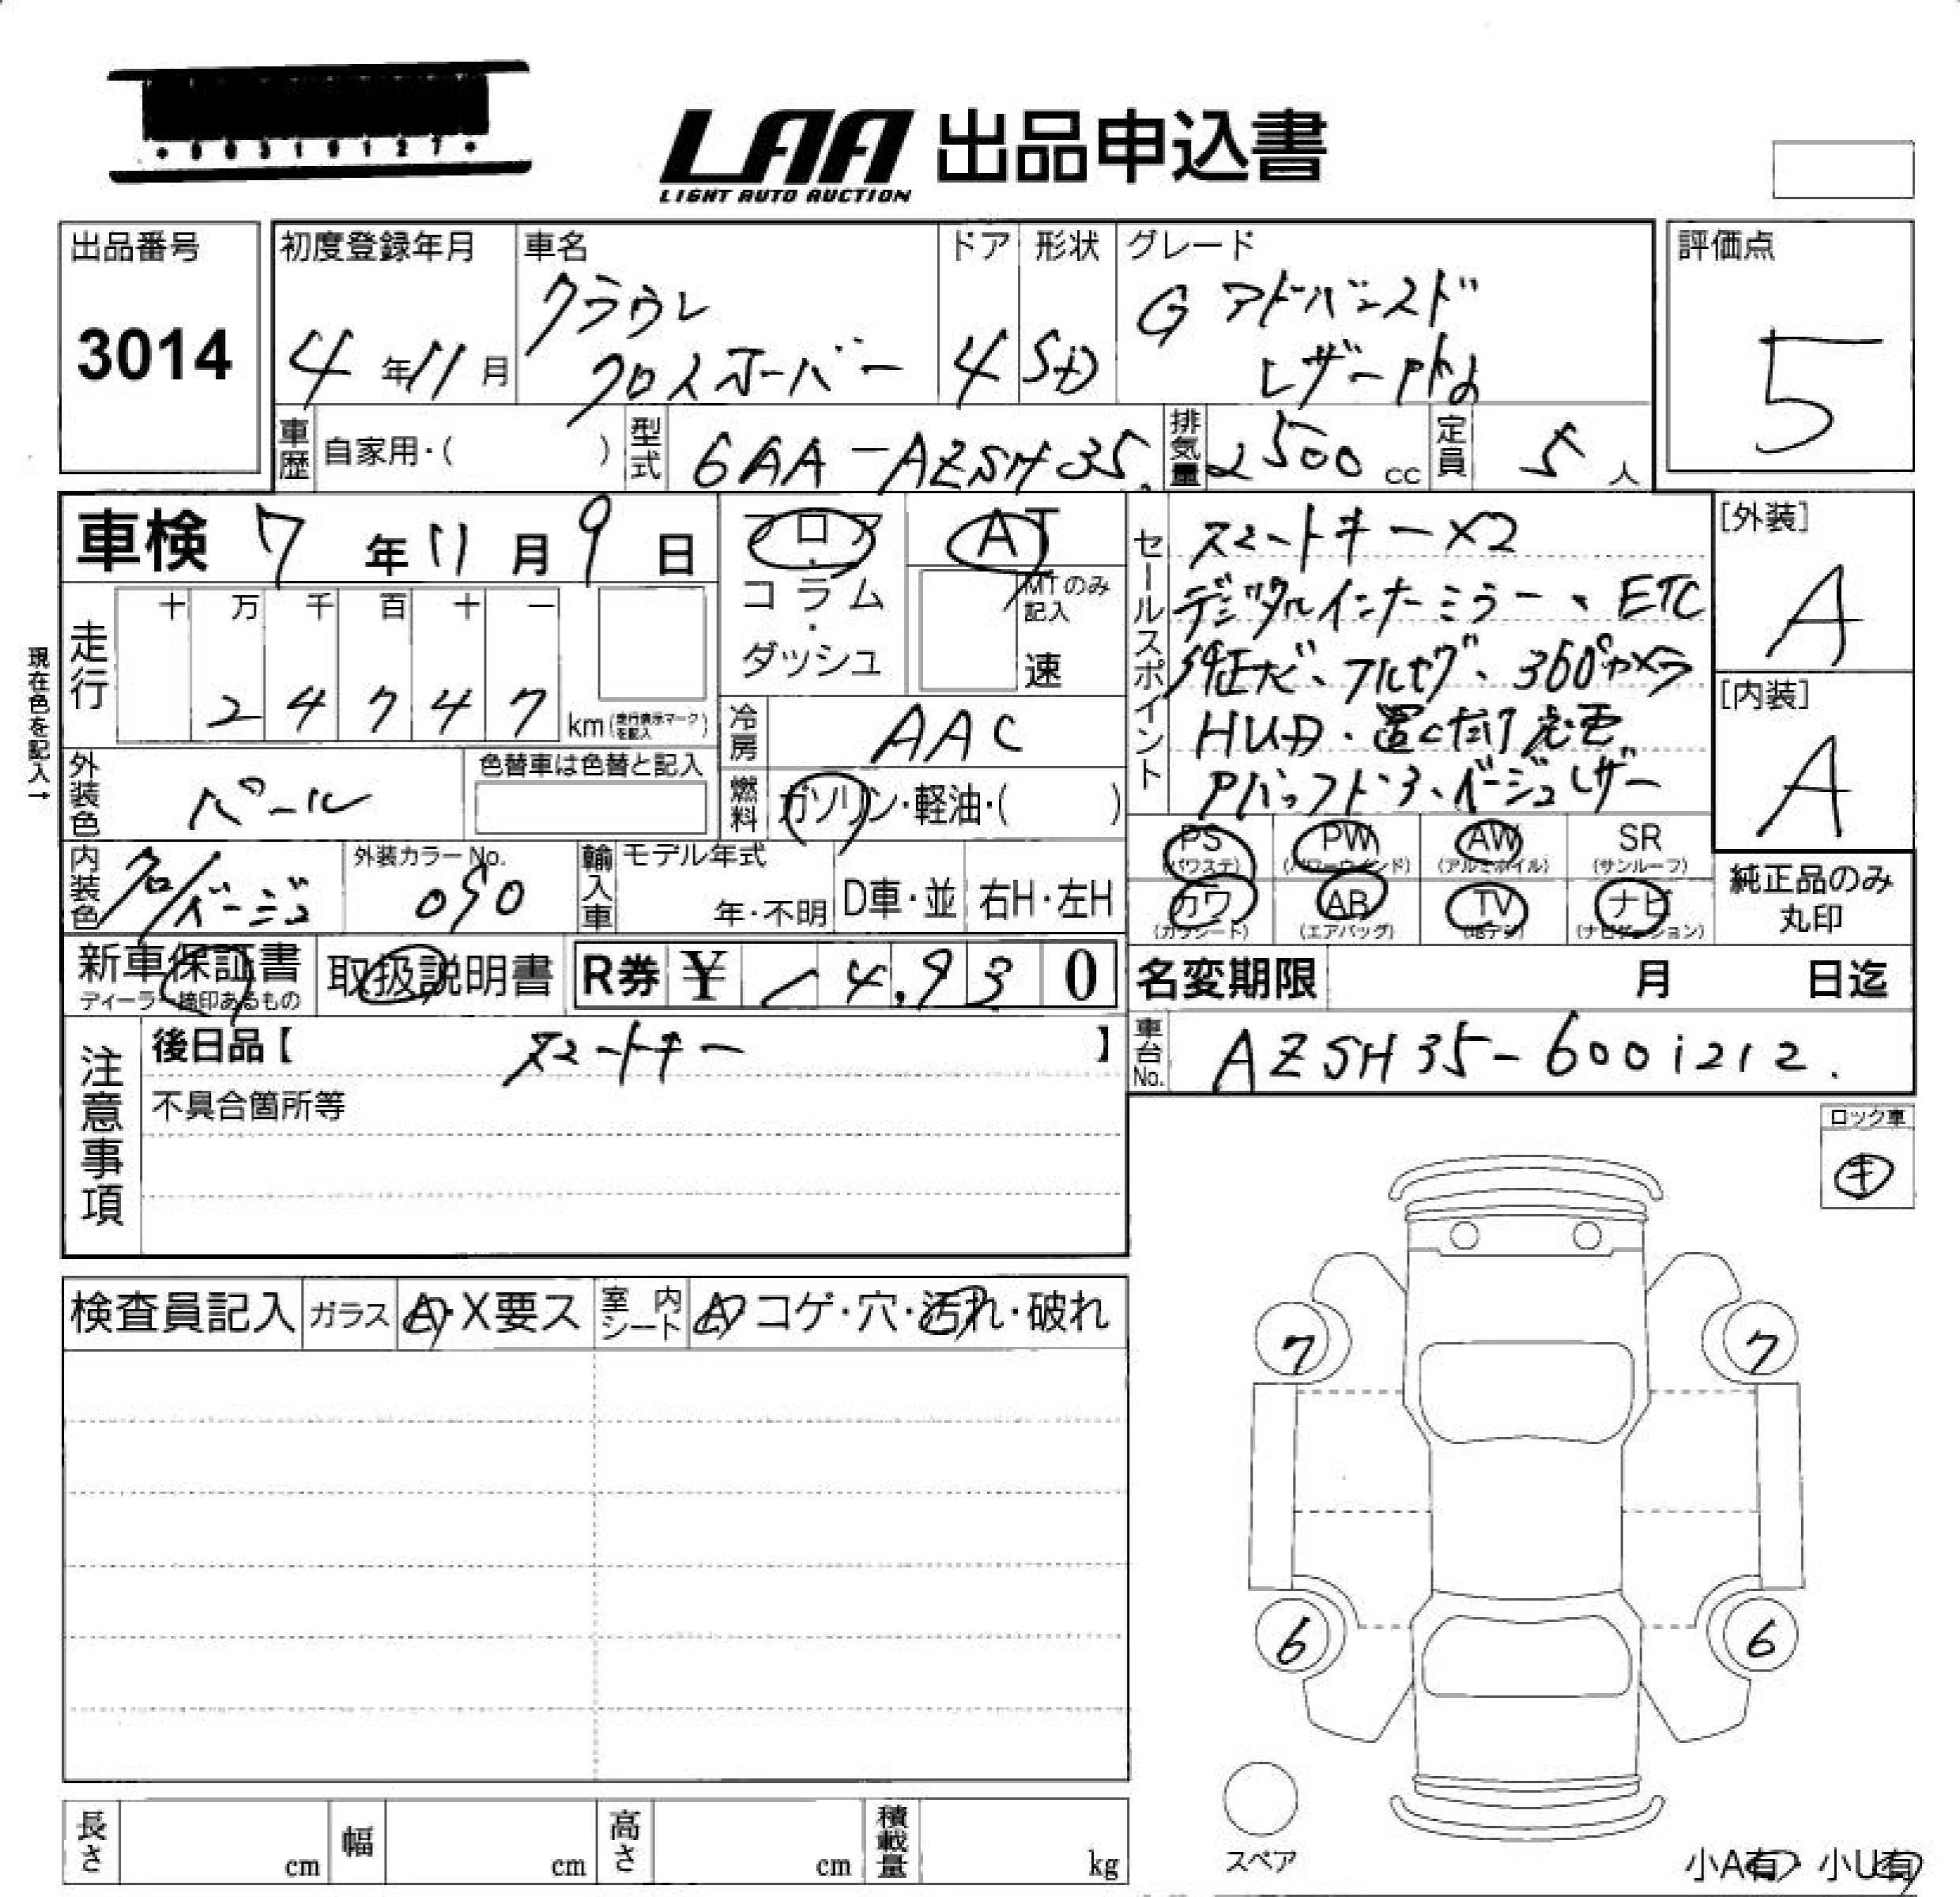 LAA 出品申込書
LIGHT AUTO AUCTION
出品番号
3014
初度登録年月
4年11月
車名
クラウン
クロスオーバー
ドア
4
形状
SD
グレード
G アドバンスド
レザーPkg
評価点
5
車歴 自家用・( )
型式 6AA-AZSH35.
排気量 2500 cc
定員 5 人
車検 7年11月9日
フロア・コラム・ダッシュ
AT
MTのみ記入
速
走行
十 万 千 百 十 一
2 4 7 4 7 km(走行表示マークを記入)
現在色を記入→
外装色 パール
色替車は色替と記入
冷房 AAC
燃料 ガソリン・軽油・( )
内装色 クロ/ベージュ
外装カラーNo. 090
輸入車 モデル年式
年・不明 D車・並 右H・左H
新車保証書
取扱説明書
R券 ¥ 14,930
セールスポイント
スマートキー×2
デジタルインナーミラー、ETC
純正ナビ、フルセグ、360°カメラ
HUD・置くだけ充電
ベージュレザー
[外装]
A
[内装]
A
PS(パワステ) PW(パワーウインド) AW(アルミホイル) SR(サンルーフ)
カワ(カワシート) AB(エアバッグ) TV(地デジ) ナビ(ナビゲーション)
純正品のみ
丸印
名変期限 月 日迄
車台No. AZSH35-6001212.
注意事項
後日品【 スマートキー 】
不具合箇所等
ロック車
キ
検査員記入 ガラス A・X要ス 室内シート A コゲ・穴・汚れ・破れ
7 7
6 6
スペア
長さ cm 幅 cm 高さ cm 積載量 kg
小A有・小U有